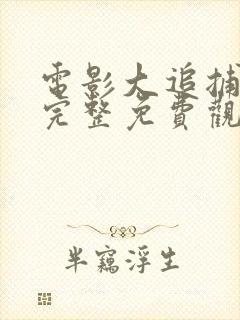 電影大追捕
完整免費觀
半竊浮生